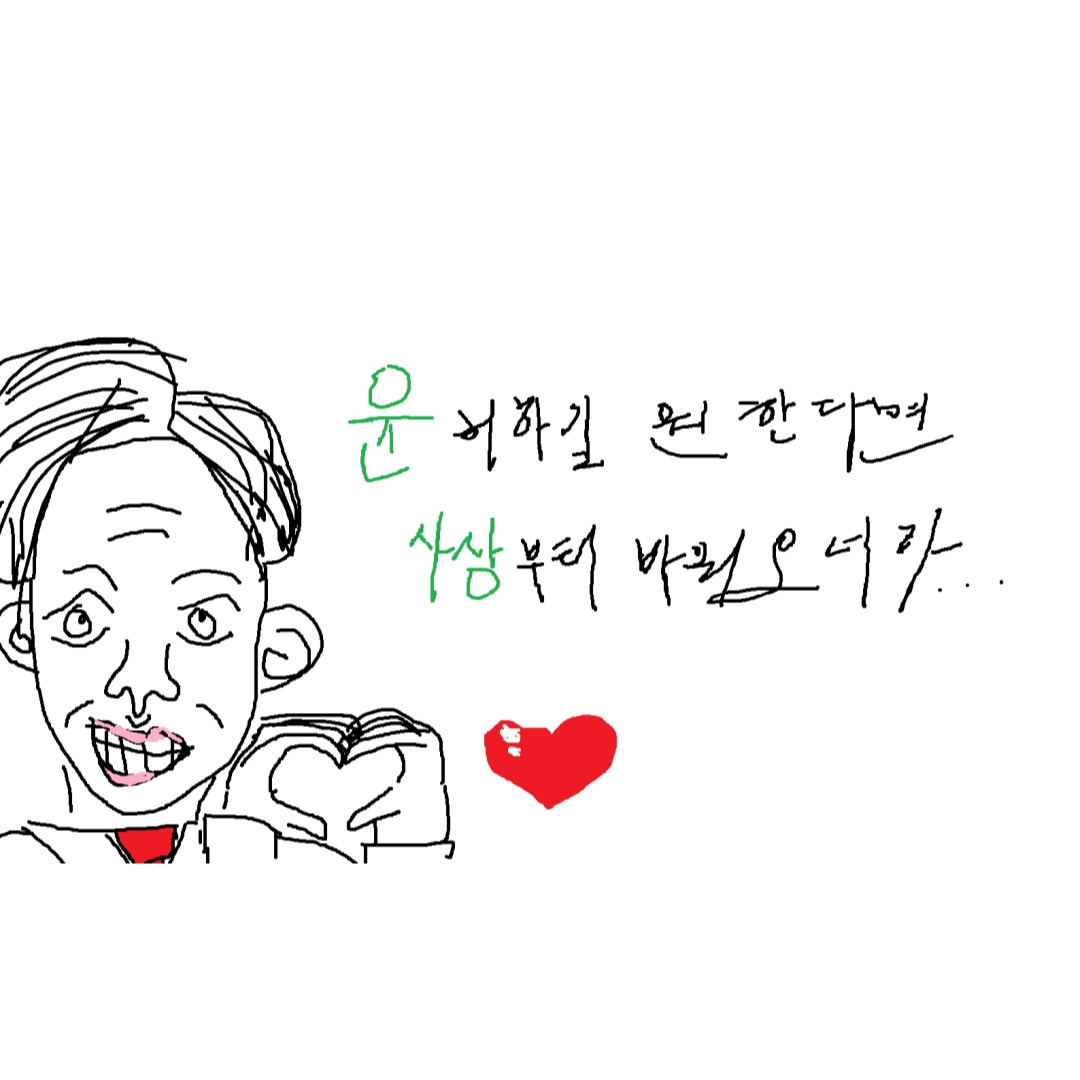 윤허하길 원한다면
사상부터 바꿔오너라...